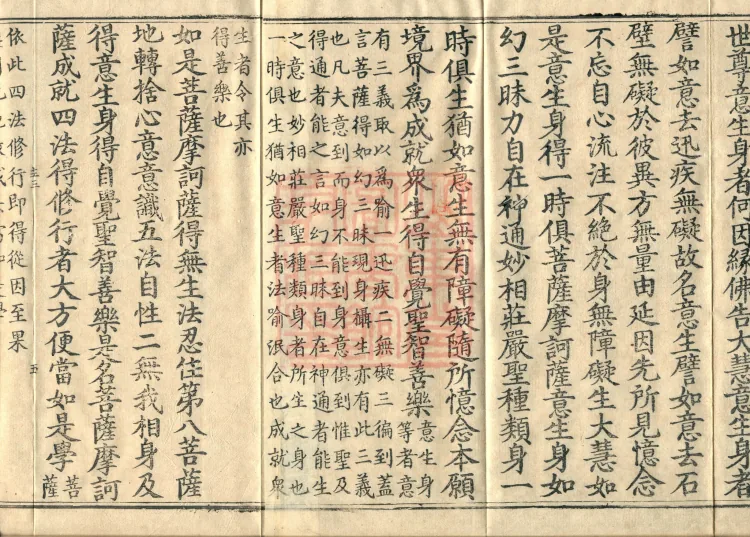 世尊意生身者何因緣佛告大慧意生身者
譬如意去迅疾無礙故名意生譬如意去石
壁無礙於彼異方無量由延因先所見憶念
不忘自心流注不絕於身無障礙生大慧如
是意生身得一時俱菩薩摩訶薩意生身如
幻三昧力自在神通妙相莊嚴聖種類身一
時俱生猶如意生無有障礙隨所憶念本願
境界爲成就眾生得自覺聖智善樂
意生身
等者意
有三義取以爲喻一迅疾二無礙三徧到蓋
言菩薩得如幻三昧現身攝生亦有此三義
也凡夫意到而身不能到身意俱到惟聖及
得通者能之言如幻三昧自在神通者能生
之意也妙相莊嚴聖種類身者所生之身也
一時俱生猶如意生者法喻泯合也成就衆
生者令其亦
得善樂也
如是菩薩摩訶薩得無生法忍住第八菩薩
地轉捨心意意識五法自性二無我相身及
得意生身得自覺聖智善樂是名菩薩摩訶
薩成就四法得修行者大方便當如是學
菩
薩
五
依此四法修行即得從因至果